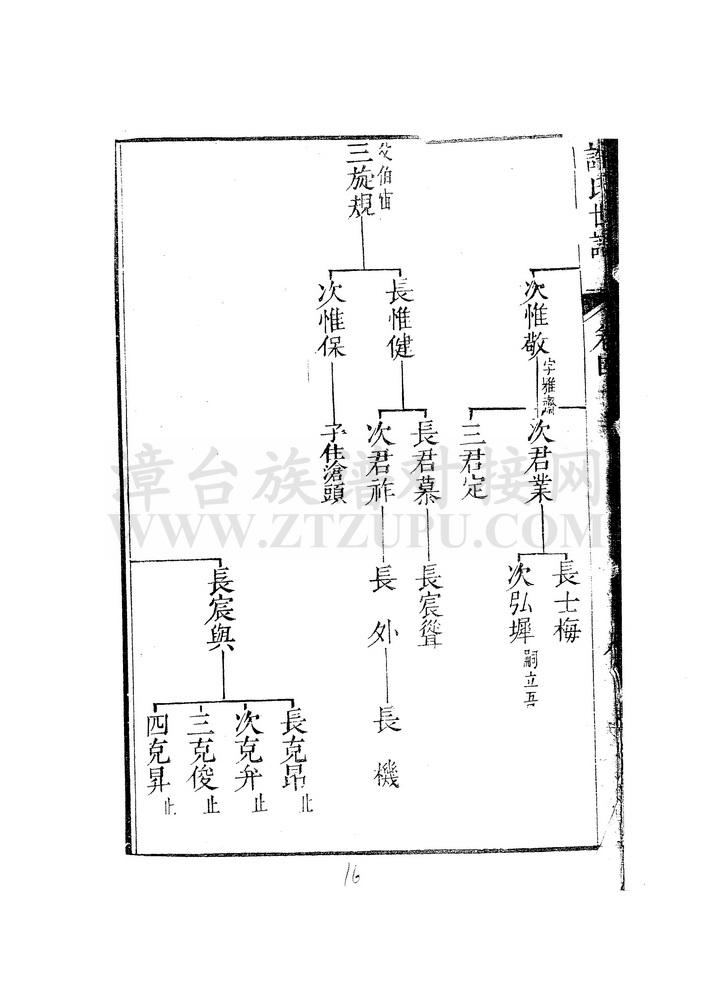 次惟敬
字雅齋
次君業
三君定
長士梅
次弘墀
嗣立吾
父伯宙
三旋規
長惟健
次惟保
長君慕
次君祚
子隹滄頭
長宸聳
長外
長機
長宸與
長克昂 止
次克弁 止
三克俊 止
四克昇 止
16
章台族譜对接网
WWW.ZTZUPU.COM